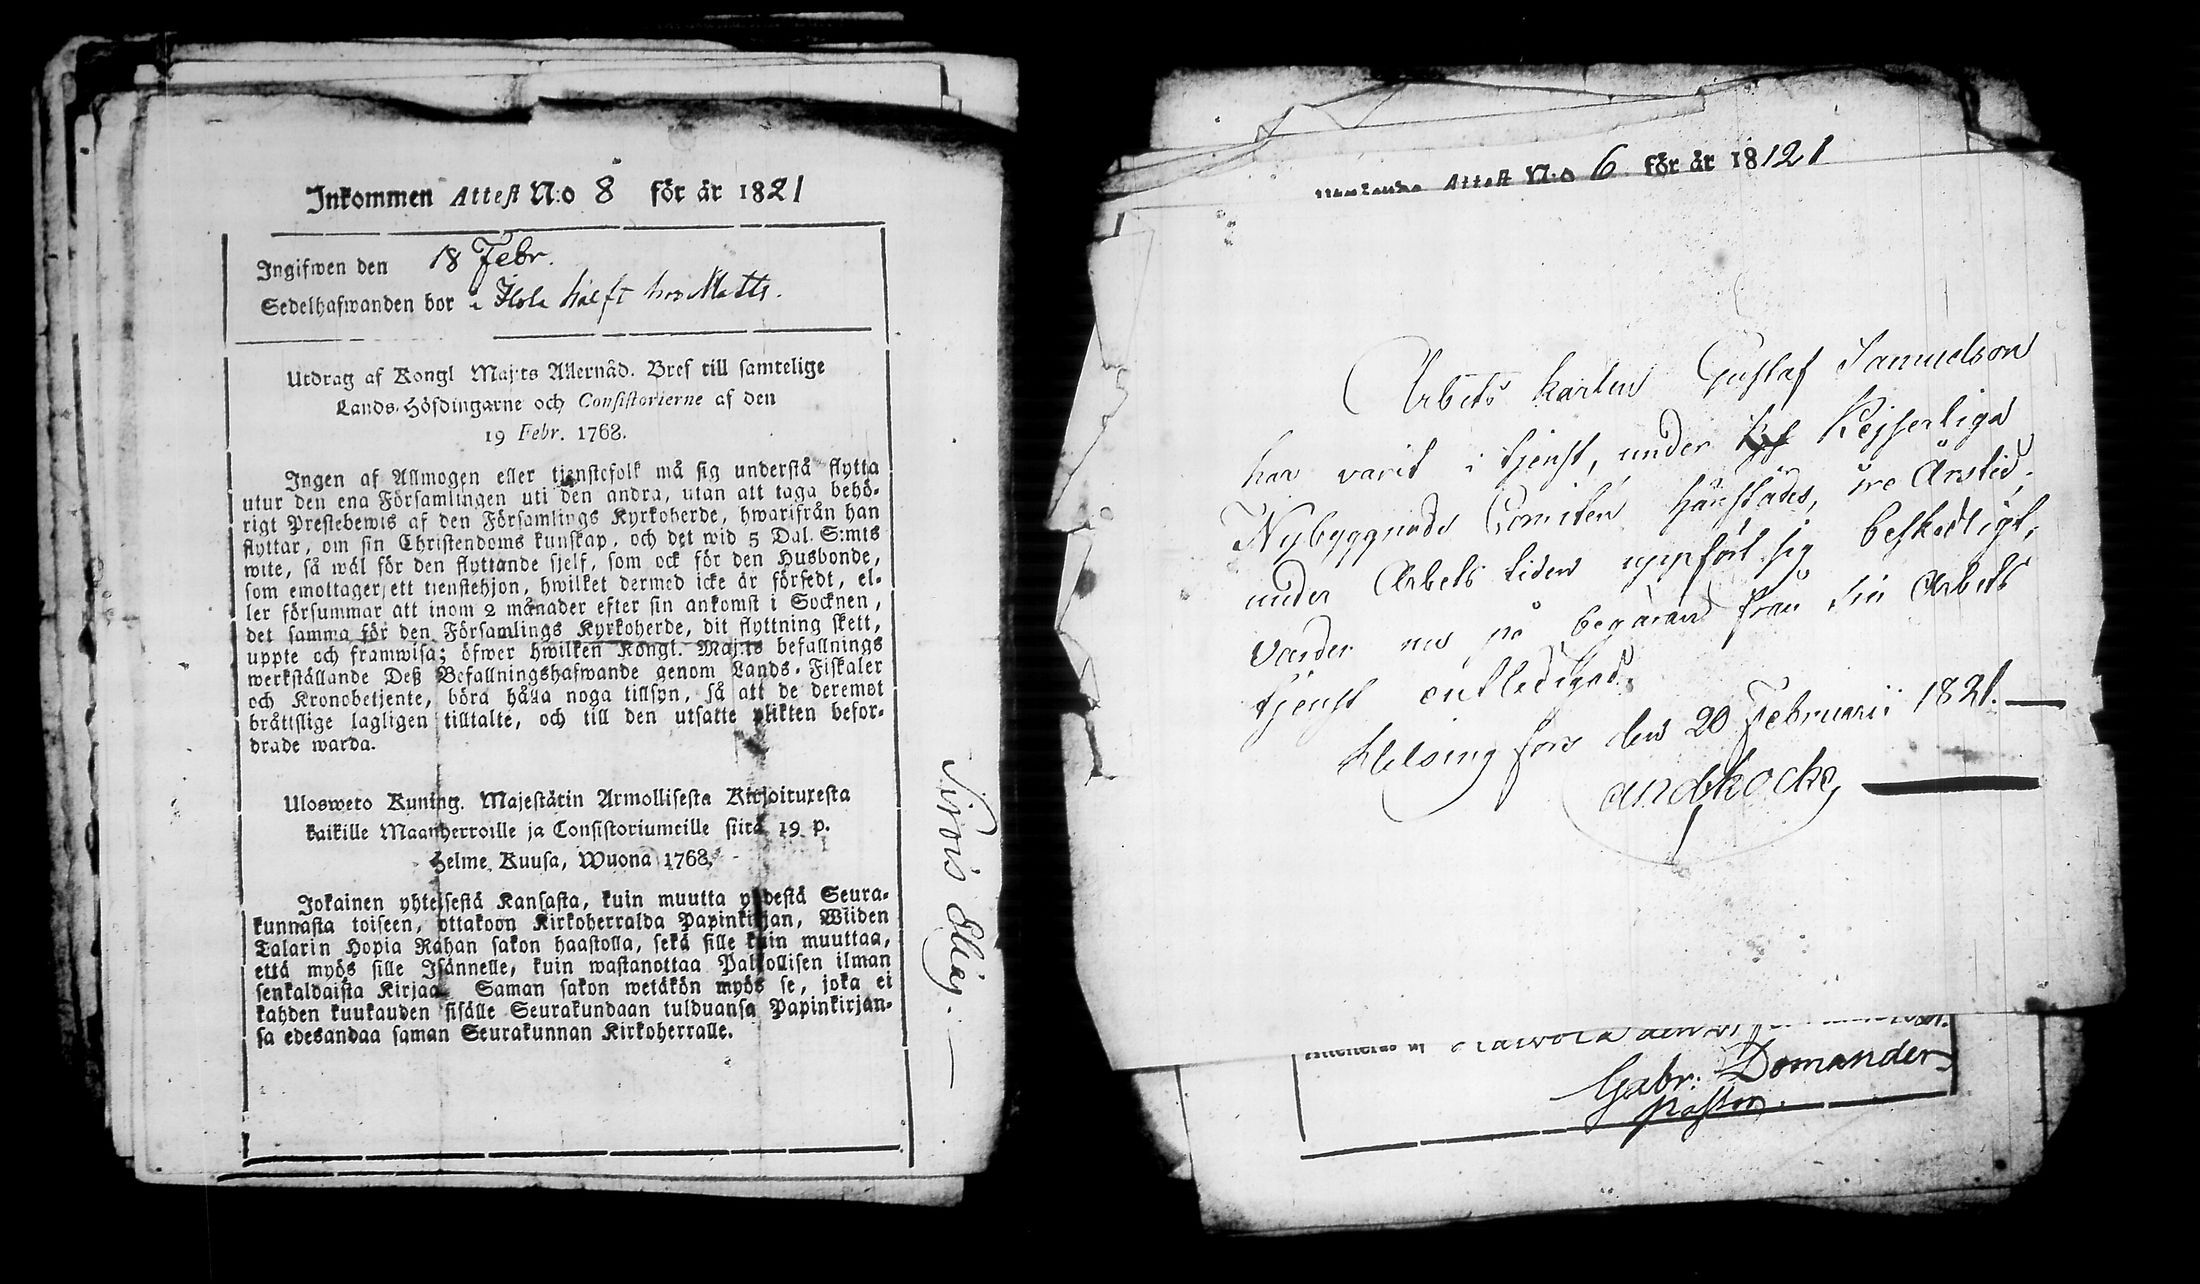 Inkommen Attest N:o 8 för år 1821
Ingifwen den 18 Febr.
Sedelhafwanden bor i Hola hälft hos Matts.
Utdrag af Kongl Maj:ts Allernåd. Bref till samtelige
Lands-Höfdingarne och Consistorierne af den
19 Febr. 1768.
Ingen af Allmogen eller tjenstefolk må sig understå flytta
utur den ena Församlingen uti den andra, utan att taga behö-
rigt Prestebewis af den Församlings Kyrkoherde, hwarifrån han
flyttar, om sin Christendoms kunskap, och det wid 5 Dal. S:mts
wite, så wäl för den flyttande sjelf, som ock för den Husbonde,
som emottager ett tienstehjon, hwilket dermed icke är försedt, el-
ler försummar att inom 2 månader efter sin ankomst i Socknen,
det samma för den Församlings Kyrkoherde, dit flyttning skett,
uppte och framwisa; öfwer hwilken Kongl. Maj:ts befallnings
werkställande Deß Befallningshafwande genom Lands-Fiskaler
och Kronobetjente, böra hålla noga tillsyn, så att de deremot
bråttslige lagligen tilltalte, och till den utsatte plikten befor-
drade warda.
Ulosweto Kuning. Majestätin Armollisesta Kirjoituxesta
kaikille Maanherroille ja Consistoriumeille siitä 19 p.
Helme Kuusa, Wuona 1768.
Jokainen yhteisestä Kansasta, kuin muutta yhdestä Seura-
kunnasta toiseen, ottakoon Kirkoherralda Papinkirjan, Wiiden
Talarin Hopia Rahan sakon haastolla, sekä sille kuin muuttaa,
että myös sille Isännelle, kuin wastanottaa Palkollisen ilman
senkaldaista Kirjaa. Saman sakon wetäkön myös se, joka ei
kahden kuukauden sisälle Seurakundaan tulduansa Papinkirjan-
sa edesandaa saman Seurakunnan Kirkoherralle.
Attest N:o 6 för år 18121
Arbets karlen Gustaf Samuelson
har varit i tjenst, under Kejserliga
Nybyggnads Comitén härstädes, tre Årstid,
under Arbets tiden uppfört sig beskedligt,
varder nu på begäran från sin Arbets
tjenst entledigad.
Helsingfors den 20 Februarii 1821.
Gabr: Domander
Pastor.